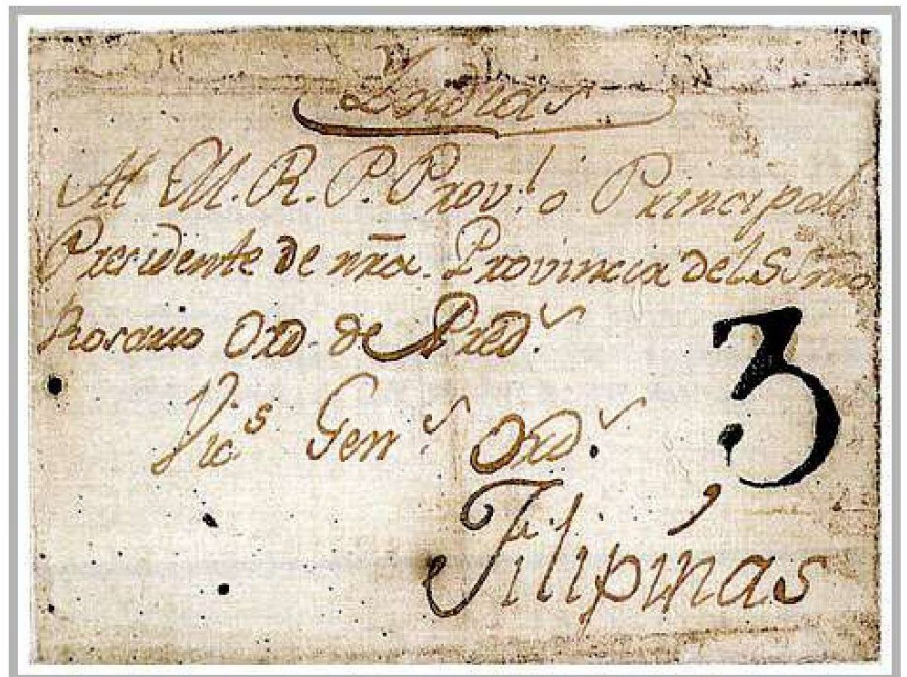 Yndias
Al M. R. P. Prov.l o Principal
Presidente de nr̃a. Provincia del SSm̃o
Rosario Ord. de Pred.s
3
Vic.s Gen.s Ord.s
Filipinas